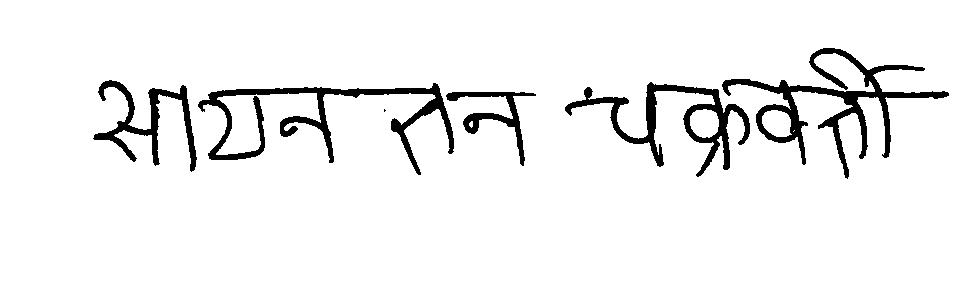 सायन तन चक्रवर्ती